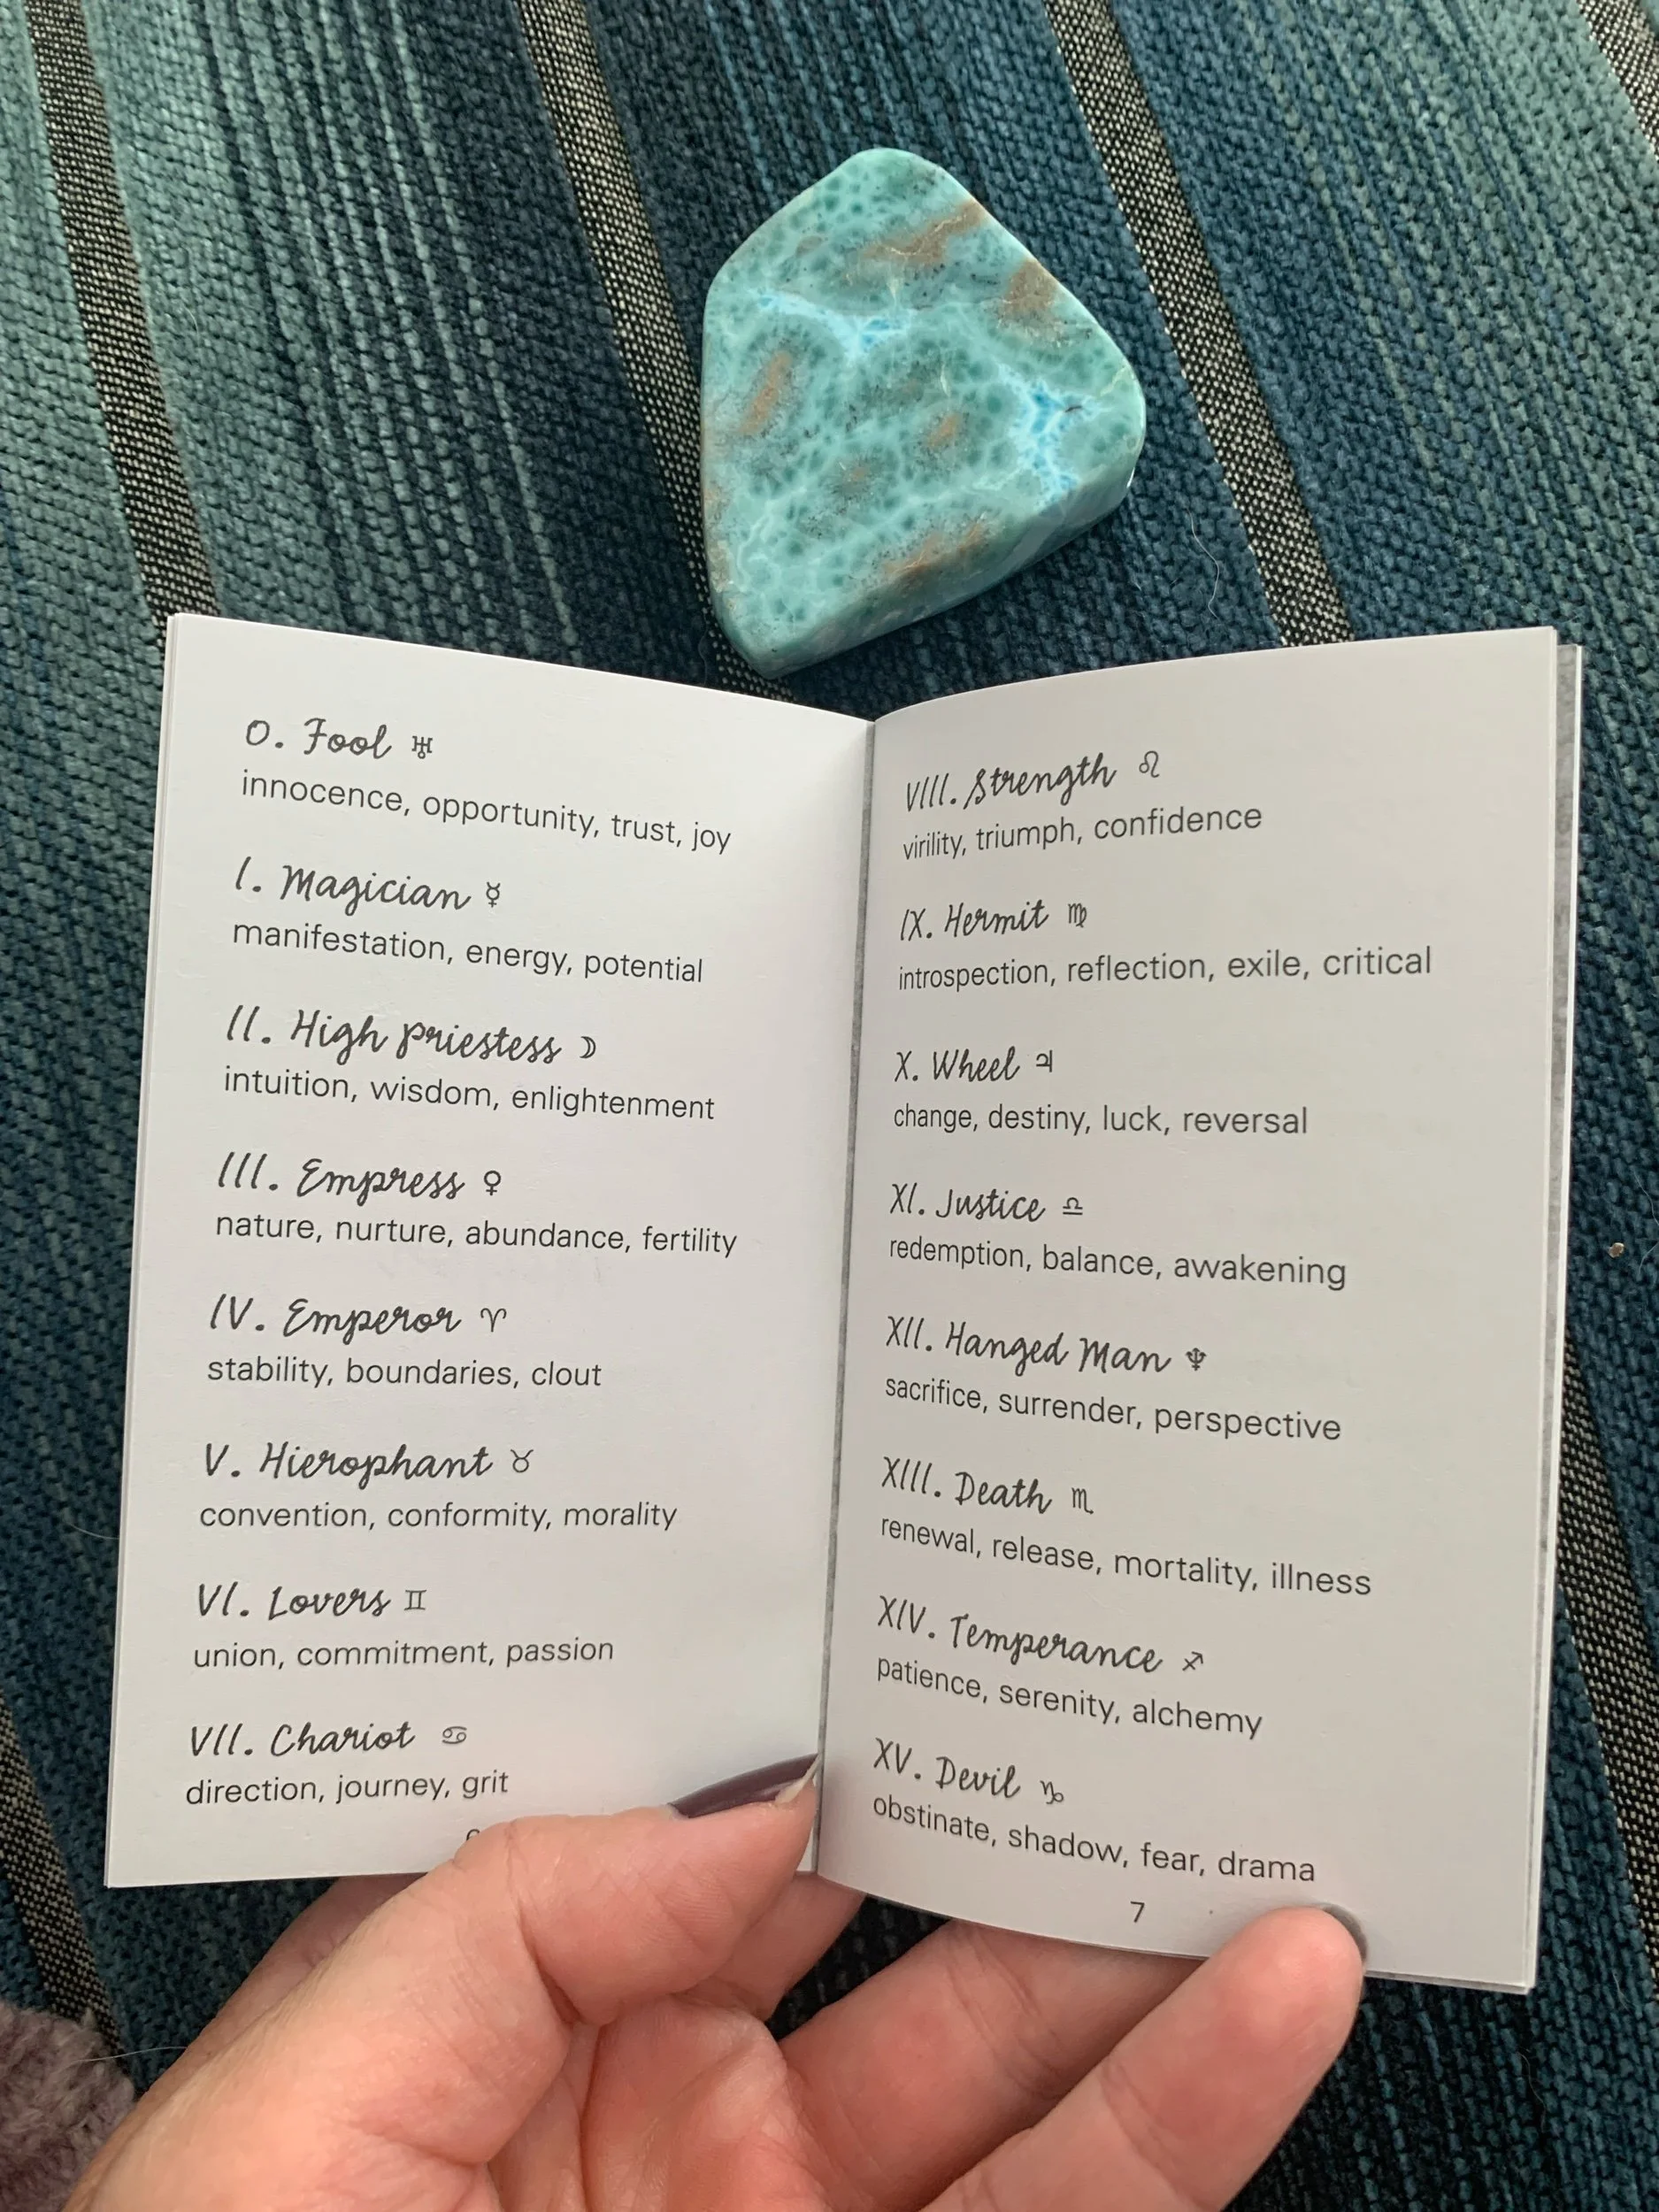 0. Fool ♅
innocence, opportunity, trust, joy
I. Magician ☿
manifestation, energy, potential
II. High Priestess ☽
intuition, wisdom, enlightenment
III. Empress ♀
nature, nurture, abundance, fertility
IV. Emperor ♈
stability, boundaries, clout
V. Hierophant ♉
convention, conformity, morality
VI. Lovers ♊
union, commitment, passion
VII. Chariot ♋
direction, journey, grit
VIII. Strength ♌
virility, triumph, confidence
IX. Hermit ♍
introspection, reflection, exile, critical
X. Wheel ♃
change, destiny, luck, reversal
XI. Justice ♎
redemption, balance, awakening
XII. Hanged Man ♆
sacrifice, surrender, perspective
XIII. Death ♏
renewal, release, mortality, illness
XIV. Temperance ♐
patience, serenity, alchemy
XV. Devil ♑
obstinate, shadow, fear, drama
7